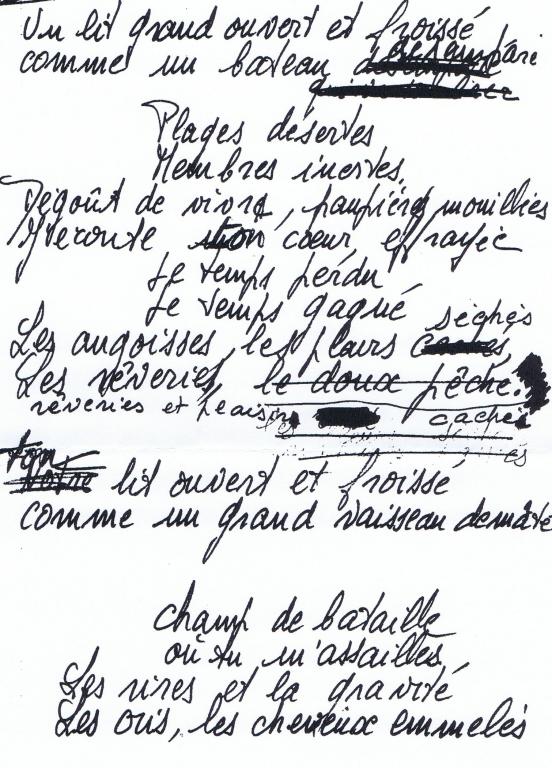 Un lit grand ouvert et froissé
comme un bateau désempari
Plages désertes
Membres inertes,
Dégoût de vivre, paupières mouillées
J'écoute ton cœur, effrayée
Le temps perdu
Le temps gagné
séchés
Les angoisses, les pleurs
Les rêveries, le doux pêché.
rêveries et plaisirs cachés
les
és
ton
notre lit ouvert et froissé
comme un grand vaisseau démâté
Champ de bataille
où tu m'assailles,
Les rires et la gravité
Les cris, les cheveux emmelés